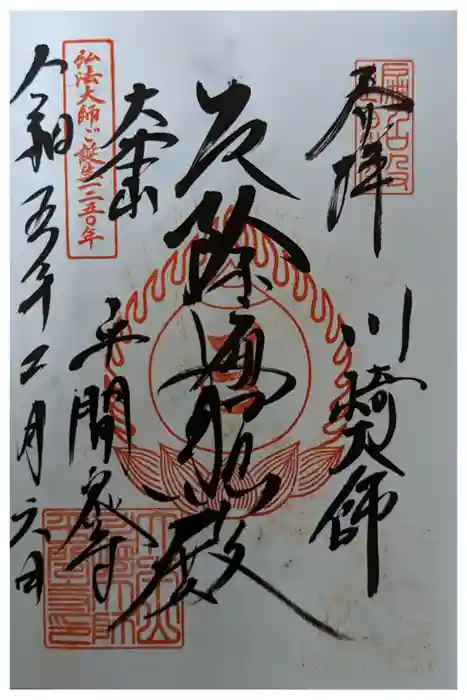 奉拝
川崎大師
厄除遍照殿
大本山
平間寺
弘法大師ご誕生一二五〇年
令和五年二月六日